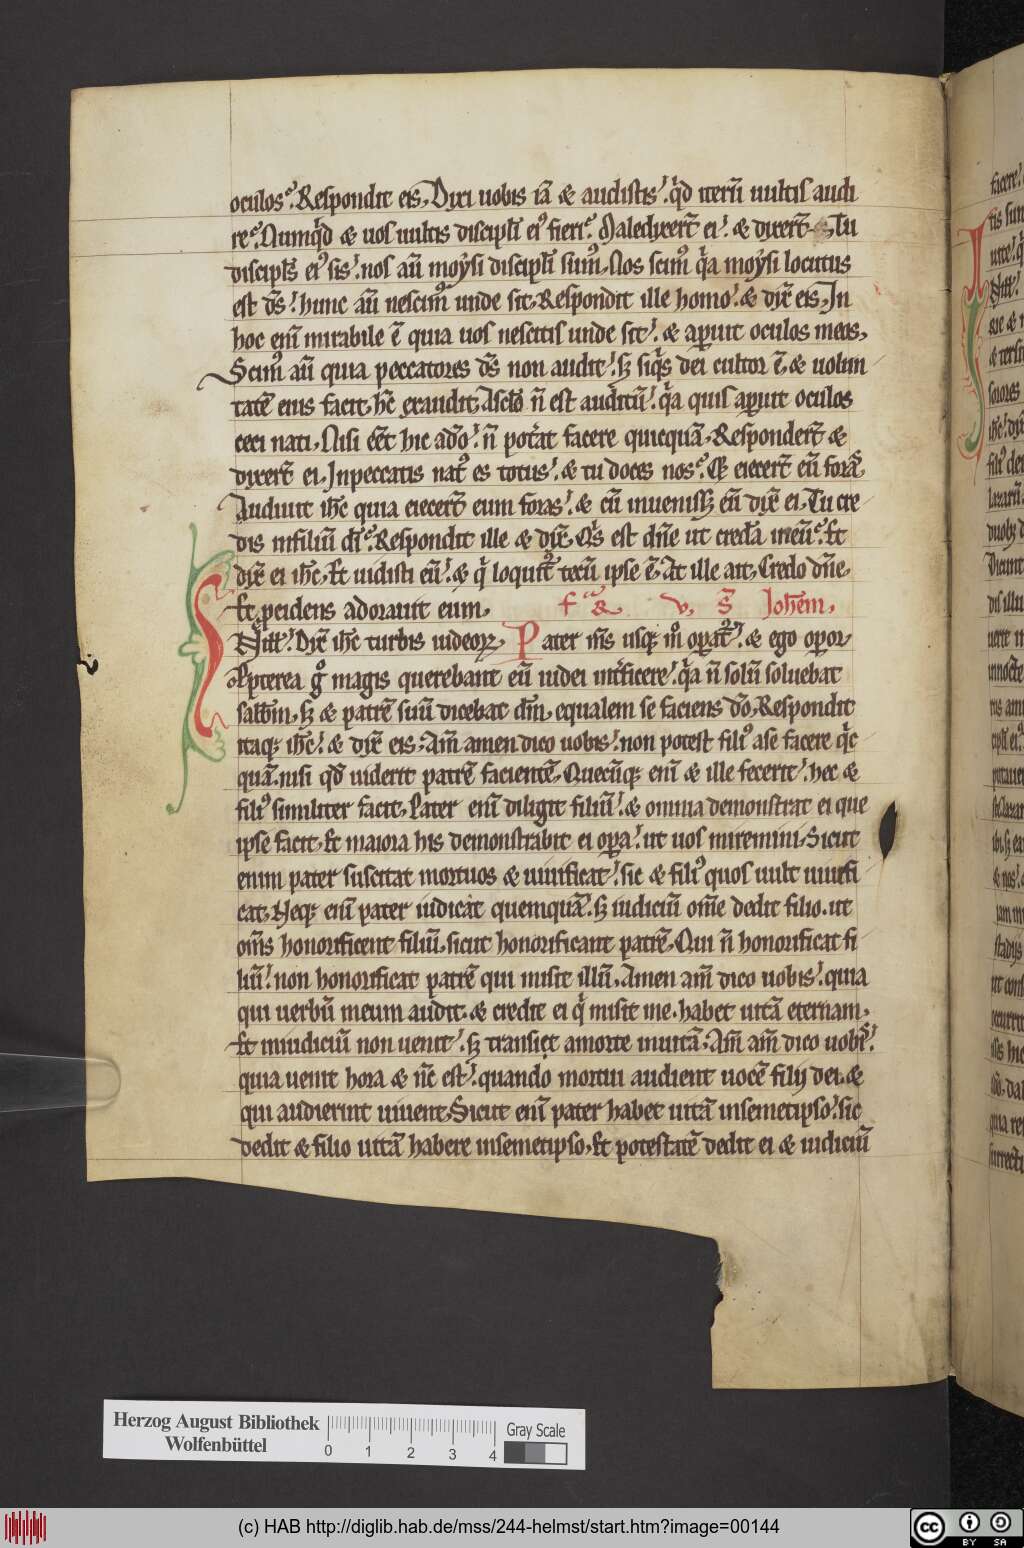 oculos? Respondit eis, Dixi uobis iā & audistis! qͥd iterū uultis audi
re? Nūqͥd & uos uultis discipl̄i eiꝰ fieri? Maledixer̄t ei! & dixer̄t, Tu
discipl̄s eiꝰ sis! nos aū moẏsi discipl̄i sumꝰ, Nos scimꝰ qͥa moẏsi locutus
est ds̄! hunc aū nescimꝰ unde sit, Respondit ille homo! & dix̄ eis, In
hoc enī mirabile ē quia uos nescitis unde sit! & aperuit oculos meos,
Scimꝰ aū quia peccatores ds̄ non audit! sꝫ siqͥs dei cultor ē & uolun
tatē eius facit, hc̄ exaudit, A sclo n̄ est auditū! qͥa quis aperuit oculos
ceci nati, Nisi eēt hic a dō! n̄ potͣat facere quicquā, Responder̄t &
dixer̄t ei, In peccatis natꝰ es totus! & tu doces nos? Et eiecer̄t eū foras,
Audiuit ihc̄ quia eiecer̄t eum foras! & cū inuenissꝫ eū dix̄ ei, Tu cre
dis in filiū dī? Respondit ille & dix̄, Qͥs est dn̄e ut credā in eū? Et
dix̄ ei ihc̄, Et uidisti eū! & qͥ loquitͬ tecū ipse ē, At ille ait, Credo dn̄e,
Et pcidens adorauit eum, fͣ & v, S̄ Johem,
In illͦ! Dix̄ ihc̄ turbis iudeoꝝ, Pater ms̄ usqꝫ mͦ opat̄ᷣ! & ego operor
Propterea gͦ magis querebant eū iudei int̄ficere! qͥa n̄ solū soluebat
sabbm̄, sꝫ & patrē suū dicebat dm̄, equalem se faciens dō, Respondit
itaqꝫ ihc̄! & dix̄ eis, Am̄ amen dico uobis! non potest filiꝰ a se facere qͥc
quā, nisi qd̄ uiderit patrē facientē, Quecūqꝫ enī & ille fecerit! hec &
filiꝰ similiter facit, Pater enī diligit filiū! & omnia demonstrat ei que
ipse facit, Et maiora his demonstrabit ei opa! ut uos miremini, Sicut
enim pater suscitat mortuos & uiuificat! sic & filiꝰ quos uult uiuifi
cat, Neqꝫ enī pater iudicat quemquā! sꝫ iudiciū om̄e dedit filio, ut
om̄s honorificent filiū, sicut honorificant patrē, Qui n̄ honorificat fi
liū! non honorificat patrē qui misit illū, Amen am̄ dico uobis! quia
qui uerbū meum audit, & credit ei qͥ misit me, habet uitā eternam,
Et in iudiciū non uenit! sꝫ transiet a morte in uitā, Am̄ am̄ dico uobis!
quia uenit hora & nc̄ est! quando mortui audient uocē filij dei, &
qui audierint uiuent, Sicut enī pater habet uitā in semetipso! sic
dedit & filio uitā habere in semetipso, Et potestatē dedit ei & iudiciū
Herzog August Bibliothek
Wolfenbüttel
0 1 2 3 4
Gray Scale
(c) HAB http://diglib.hab.de/mss/244-helmst/start.htm?image=00144
cc BY SA